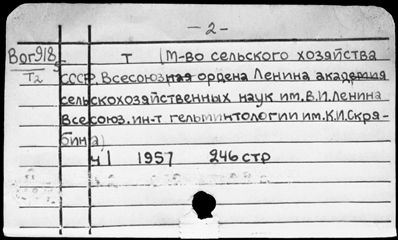 - 2 -
Вог918 т (М-во сельского хозяйства
Т2 СССР. Всесоюзная ордена Ленина академия
сельскохозяйственных наук им. В.И. Ленина
Всесоюз. ин-т гельминтологии им. К.И. Скря-
бина)
ч 1 1957 246 стр